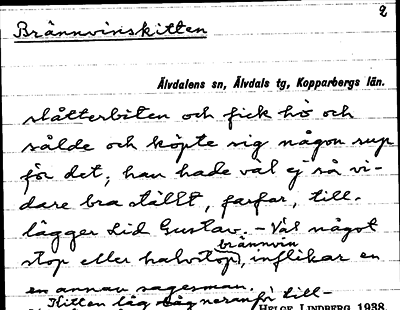 2
Brännvinskitten
Älvdalens sn, Älvdals tg, Kopparbergs län.
slåtterbiten och fick hö och
sålde och köpte sig någon sup
för det; han hade väl ej så vi-
dare bra ställt, farfar, till-
lägger Lid Gustav. – Väl något
brännvin
stop eller halvstop, inflikar en
en annan sagesman.
Kitten låg nedanför till-
HELGE LINDBERG 1938.